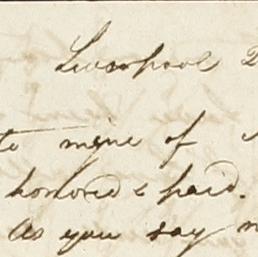 Liverpool
to mine of
honored & paid.
As you say